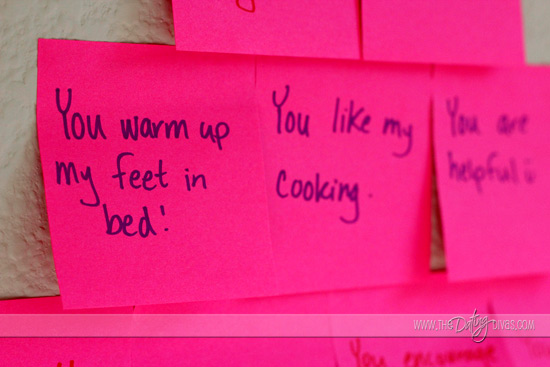 You warm up
my feet in
bed!
You like my
cooking.
You are
helpful
You encourage
WWW.THEDatingDIVAS.COM